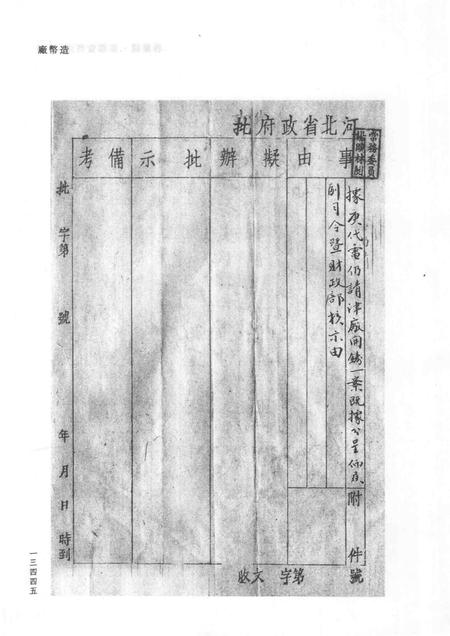 造幣廠
河北省政府批
常務委員
事由
擬辦
批示
備考
據庚代電仍請津廠開鑄一案既據分呈仰候
副司令暨財政部核示由
附件號
收文字第
批字第號
年月日時到
一三四四五